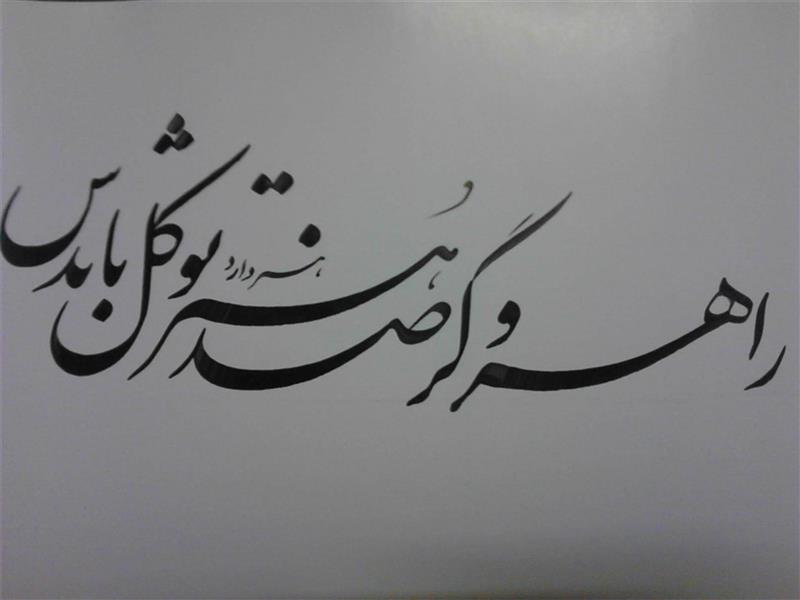 راهرو گر صد هنر دارد توکل بایدش